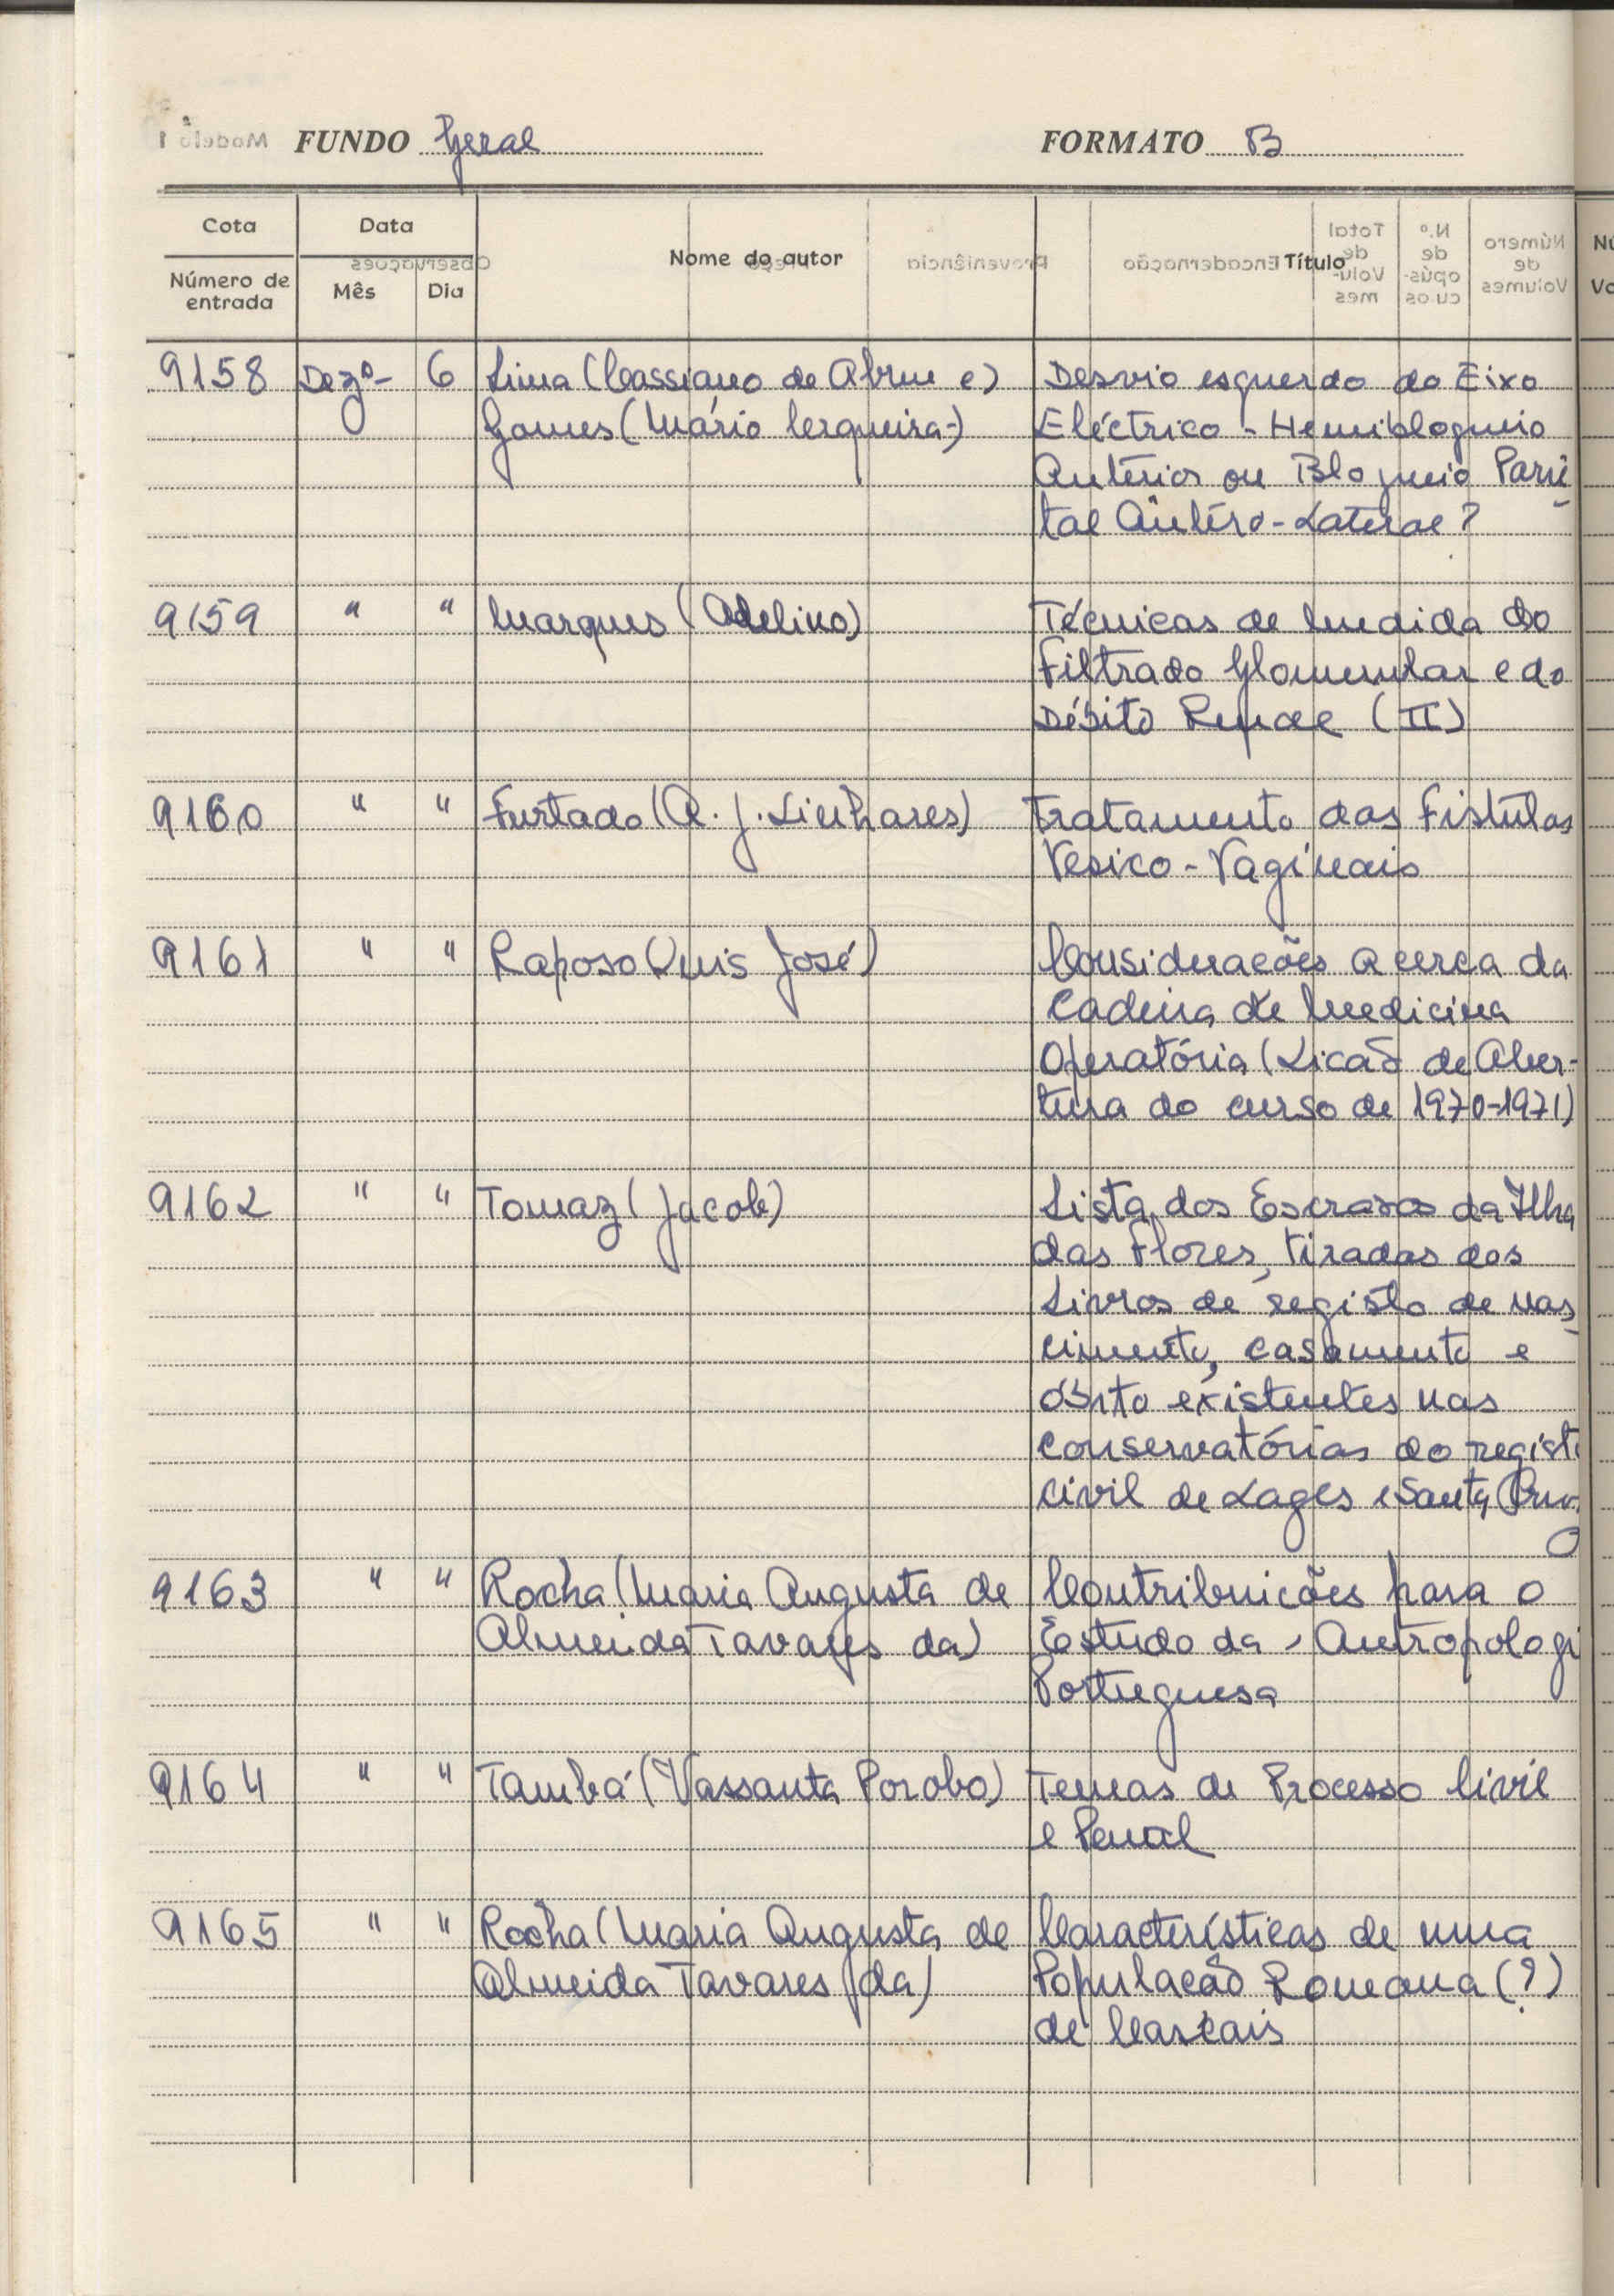 FUNDO Geral FORMATO B
Cota Data Nome do autor Título
Número de entrada Mês Dia
9158 Dezº- 6 Lima (Cassiano de Abreu e) Desvio esquerdo do Eixo
Gomes (Mário Cerqueira-) Eléctrico - Hemibloqueio
Antérior ou Bloqueio Parie
tal Antéro-Lateral?
9159 " " Marques (Adelino) Técnicas de Medida do
Filtrado Glomerular e do
Débito Renal (II)
9160 " " Furtado (A. J. Linhares) Tratamento das Fistulas
Vesico-Vaginais
9161 " " Raposo (Luis José) Considerações acerca da
Cadeira de Medicina
Operatória (Lição de Aber-
tura do curso de 1970-1971)
9162 " " Tomaz (Jacob) Lista dos Escravos da Ilha
das Flores, tiradas dos
Livros de registo de nas
cimento, casamento e
óbito existentes nas
conservatórias do regist
civil de Lages e Santa Cruz
9163 " " Rocha (Maria Augusta de Contribuições para o
Almeida Tavares da) Estudo da Antropologi
Portuguesa
9164 " " Tambá (Vassanta Porobo) Temas de Processo Civil
e Penal
9165 " " Rocha (Maria Augusta de Características de uma
Almeida Tavares da) População Romana (?)
de Cascais